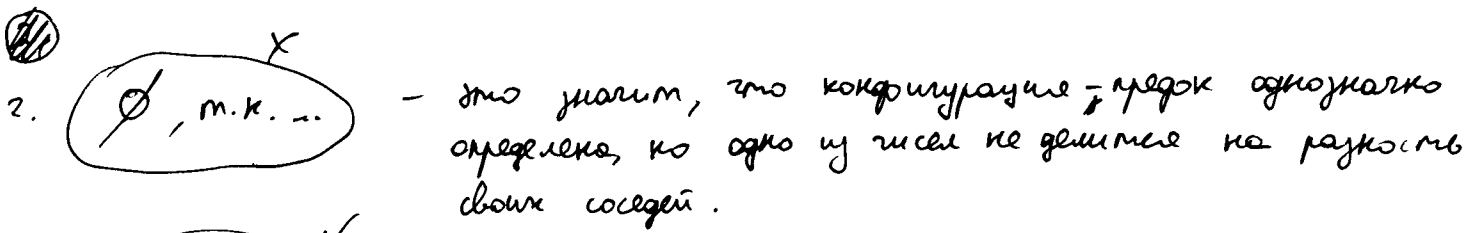 X
2. ∅, т.к. ... – это значит, что конфигурация-предок однозначно
определена, но одно из чисел не делится на разность
своих соседей.